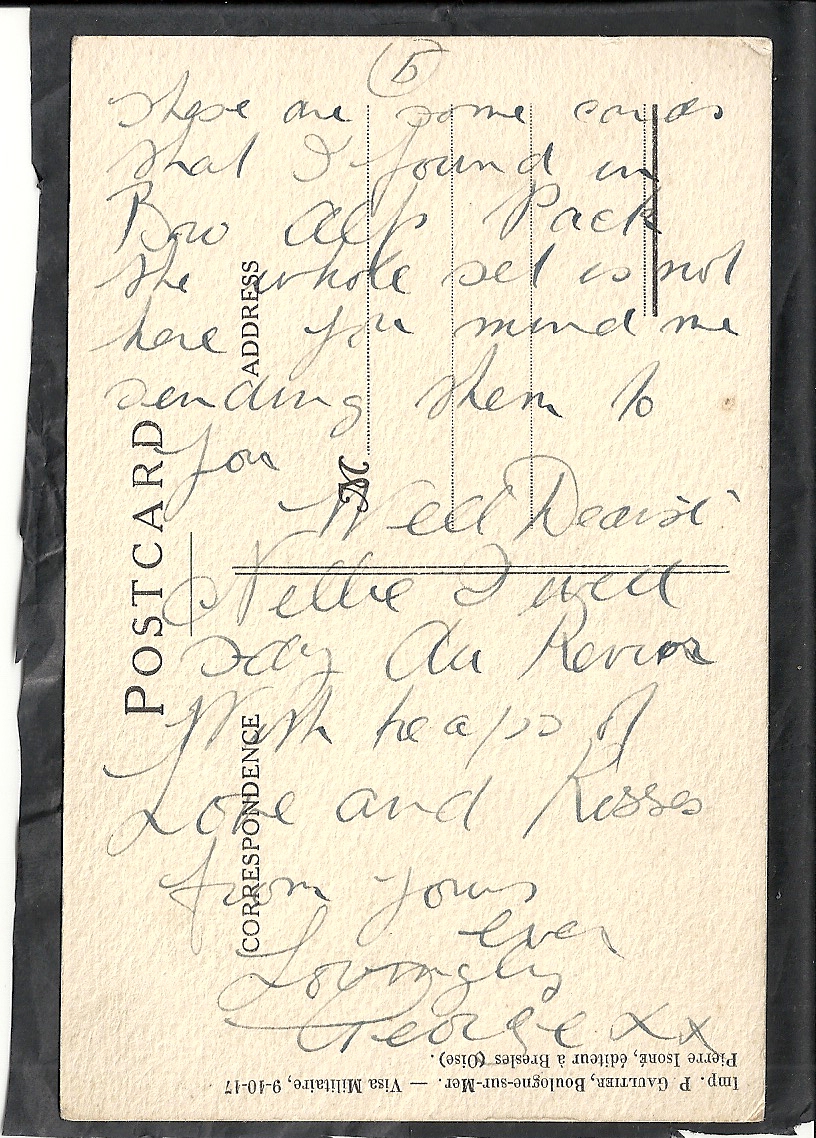 5
These are some cards
that I found in
Bro Alf's Pack
the whole set is not
here you mind me
sending them to
you
Well Dearist
Nellie I will
say Au Revior
With heaps of
Love and Kisses
from yours
ever
Lovingly
George xx
POSTCARD
CORRESPONDENCE
ADDRESS
M
Imp. P. GAULTIER, Boulogne-sur-Mer. — Visa Militaire, 9-10-17
Pierre Isoné, éditeur à Bresles (Oise).